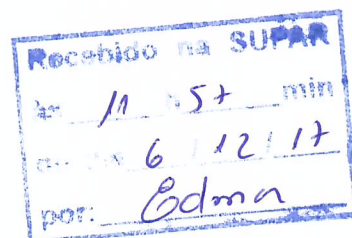 Recebido na SUPAR
às 11 h 57 min
6 / 12 / 17
por: Edma